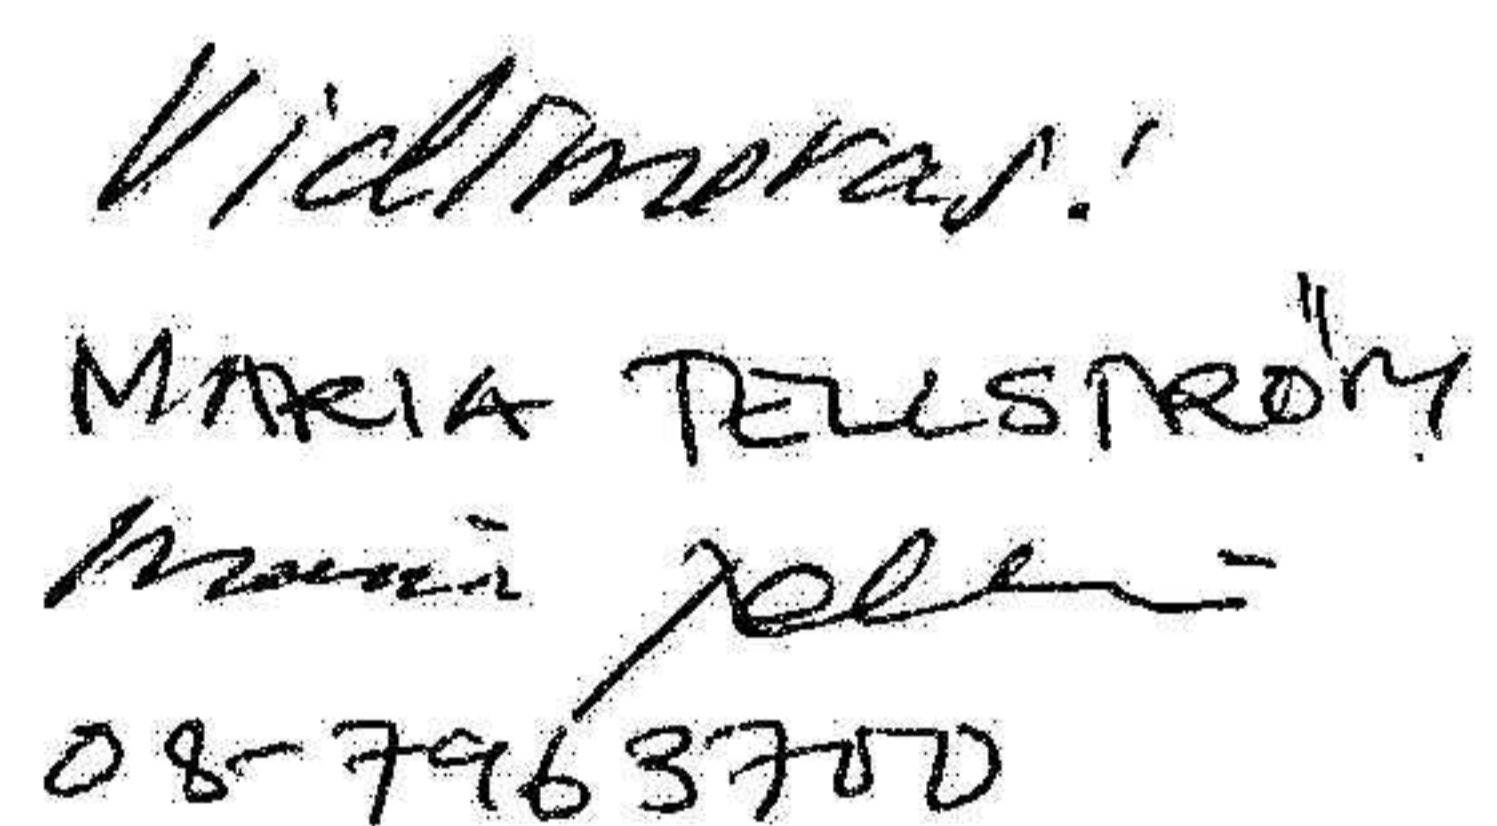 Vidimeras!
MARIA TELLSTRÖM
Maria Tells
08-7963700